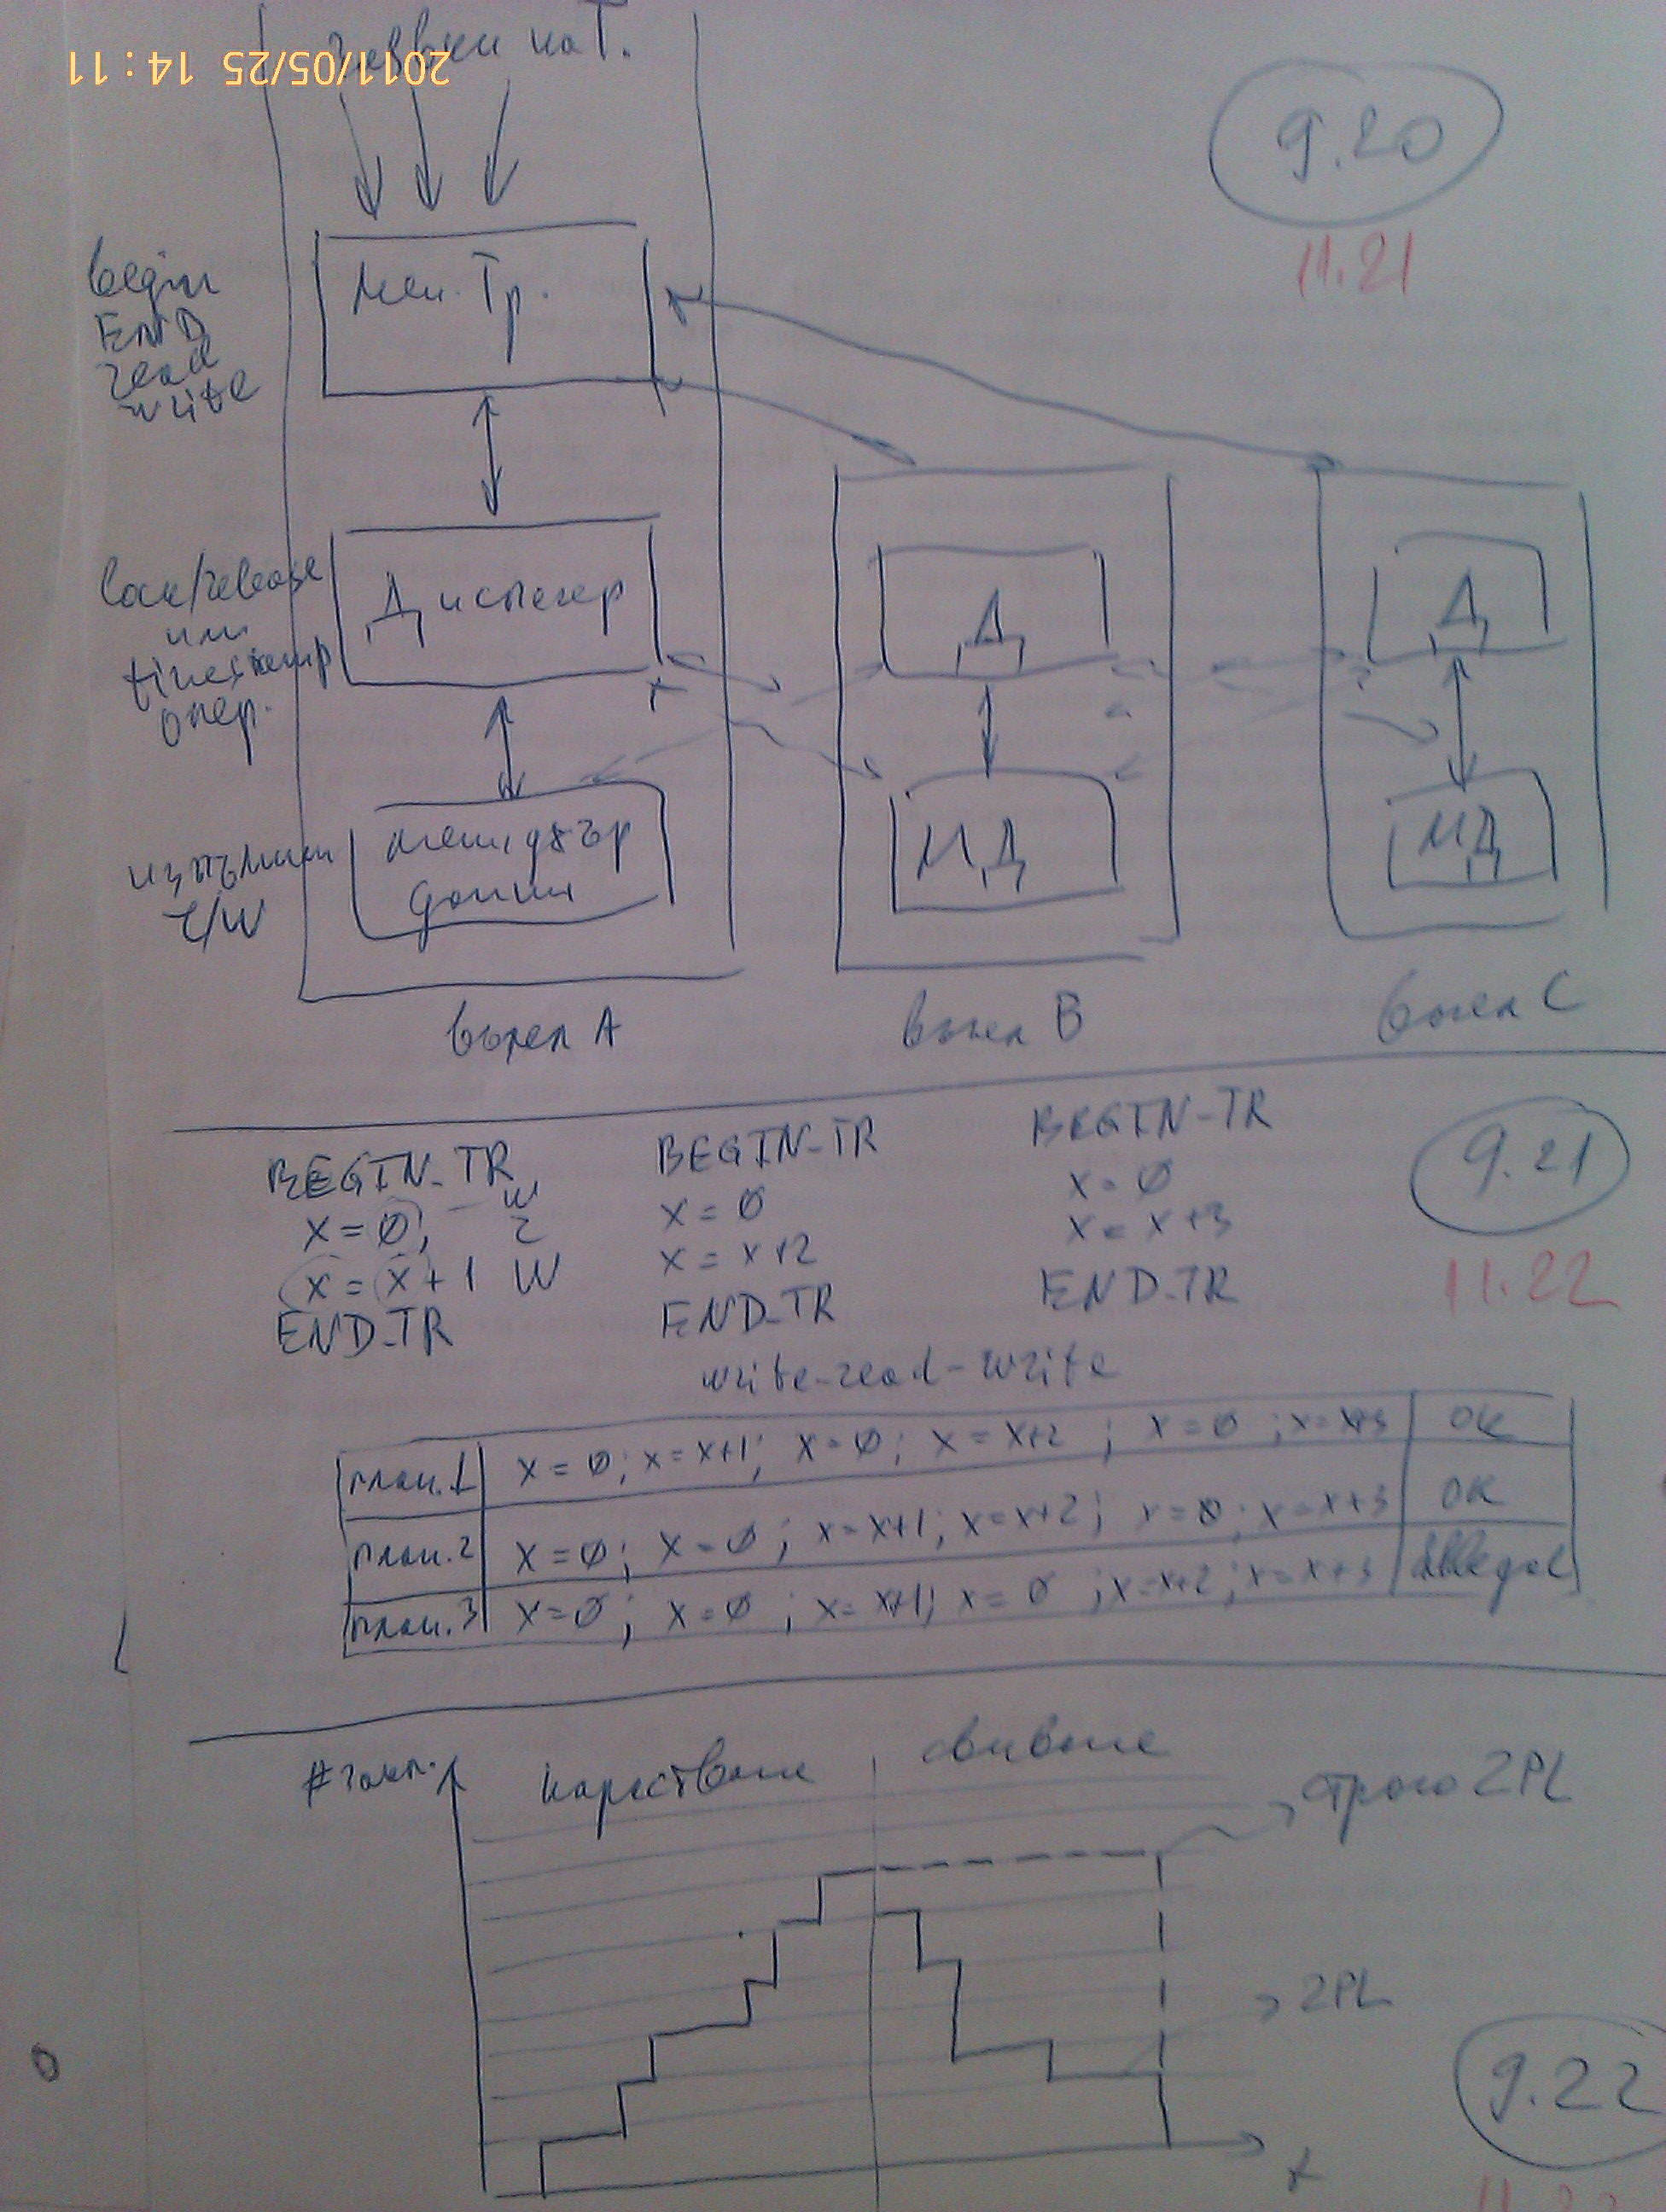 2011/05/25 14:11
Заявки на Т.
9.20
11.21
begin
END
read
write
Мен. Тр.
lock/release
или
timestamp
опер.
Диспечер
Д
Д
изпълними
r/w
мениджър
данни
МД
МД
възел А
възел В
възел С
BEGIN_TR
x = 0; w
r
x = x + 1 W
END_TR
BEGIN_TR
x = 0
x = x + 2
END_TR
BEGIN_TR
x = 0
x = x + 3
END_TR
9.21
11.22
write-read-write
план.1 x = 0; x = x+1; x = 0; x = x+2; x = 0; x = x+3 OK
план.2 x = 0; x = 0; x = x+1; x = x+2; x = 0; x = x+3 OK
план.3 x = 0; x = 0; x = x+1; x = 0; x = x+2; x = x+3 Illegal
нарастване
свиване
строго 2PL
2PL
9.22
t